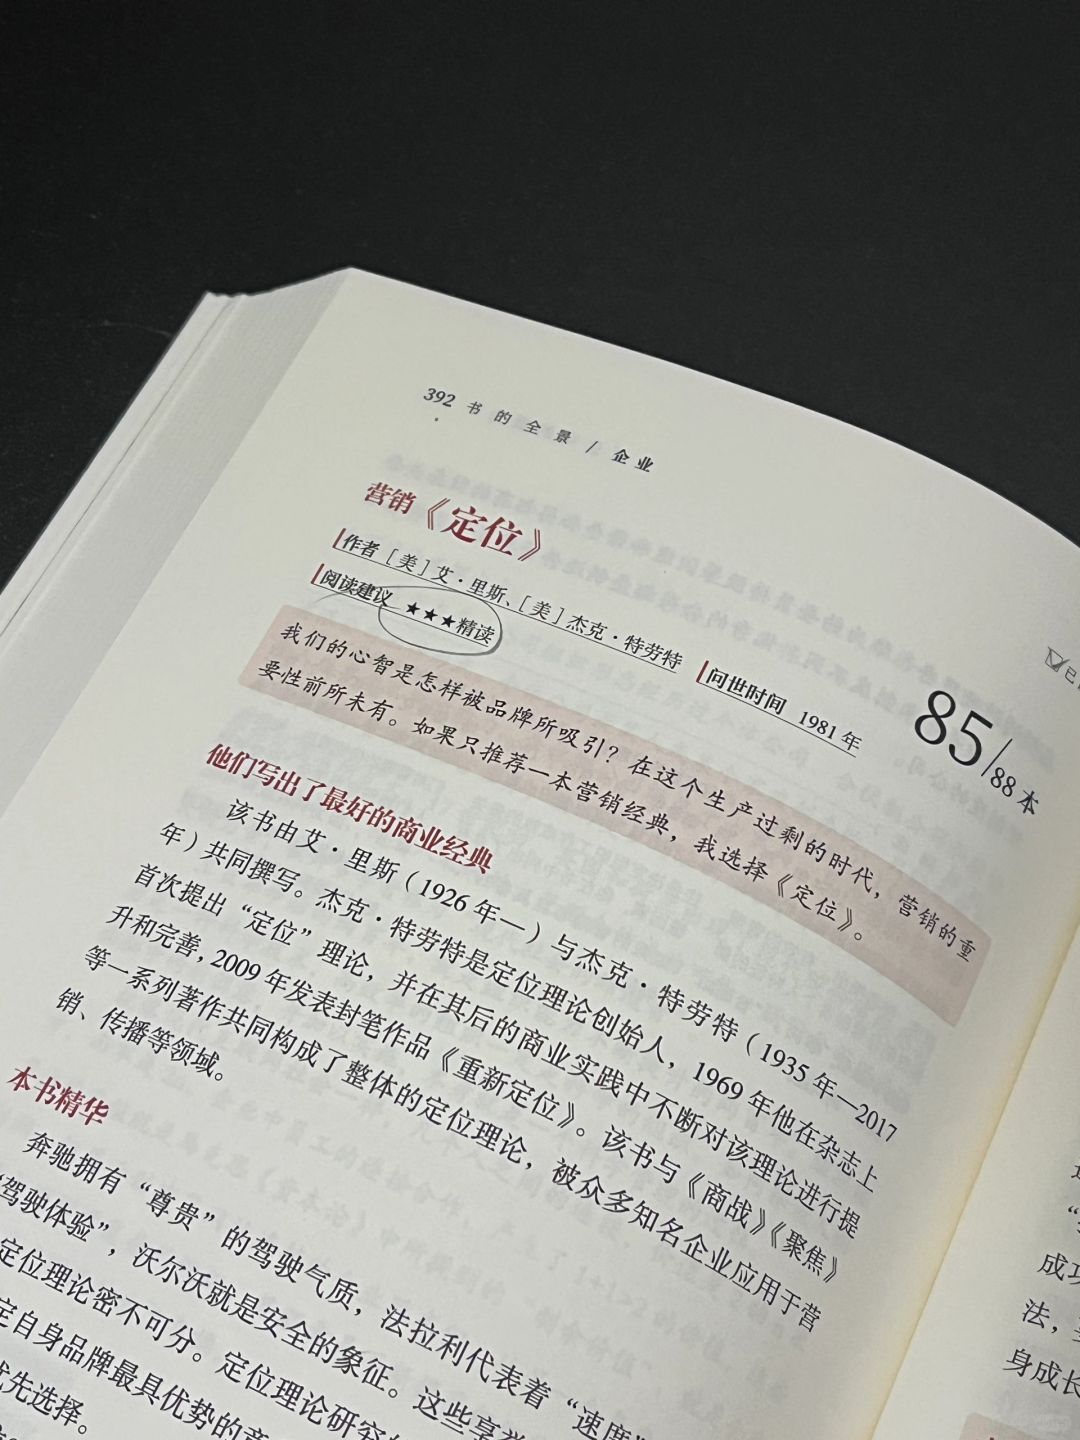 392 书的全景 / 企业
营销《定位》
作者 [美]艾·里斯、[美]杰克·特劳特 问世时间 1981年
阅读建议 ★★★精读
85/88本
我们的心智是怎样被品牌所吸引？在这个生产过剩的时代，营销的重
要性前所未有。如果只推荐一本营销经典，我选择《定位》。
他们写出了最好的商业经典
该书由艾·里斯（1926年—）与杰克·特劳特（1935年—2017
年）共同撰写。杰克·特劳特是定位理论创始人，1969年他在杂志上
首次提出“定位”理论，并在其后的商业实践中不断对该理论进行提
升和完善，2009年发表封笔作品《重新定位》。该书与《商战》《聚焦》
等一系列著作共同构成了整体的定位理论，被众多知名企业应用于营
销、传播等领域。
本书精华
奔驰拥有“尊贵”的驾驶气质，法拉利代表着“速度
“驾驶体验”，沃尔沃就是安全的象征。这些享
定位理论密不可分。定位理论研究
定自身品牌最具优势的
优先选择。
成功
法，
身成长